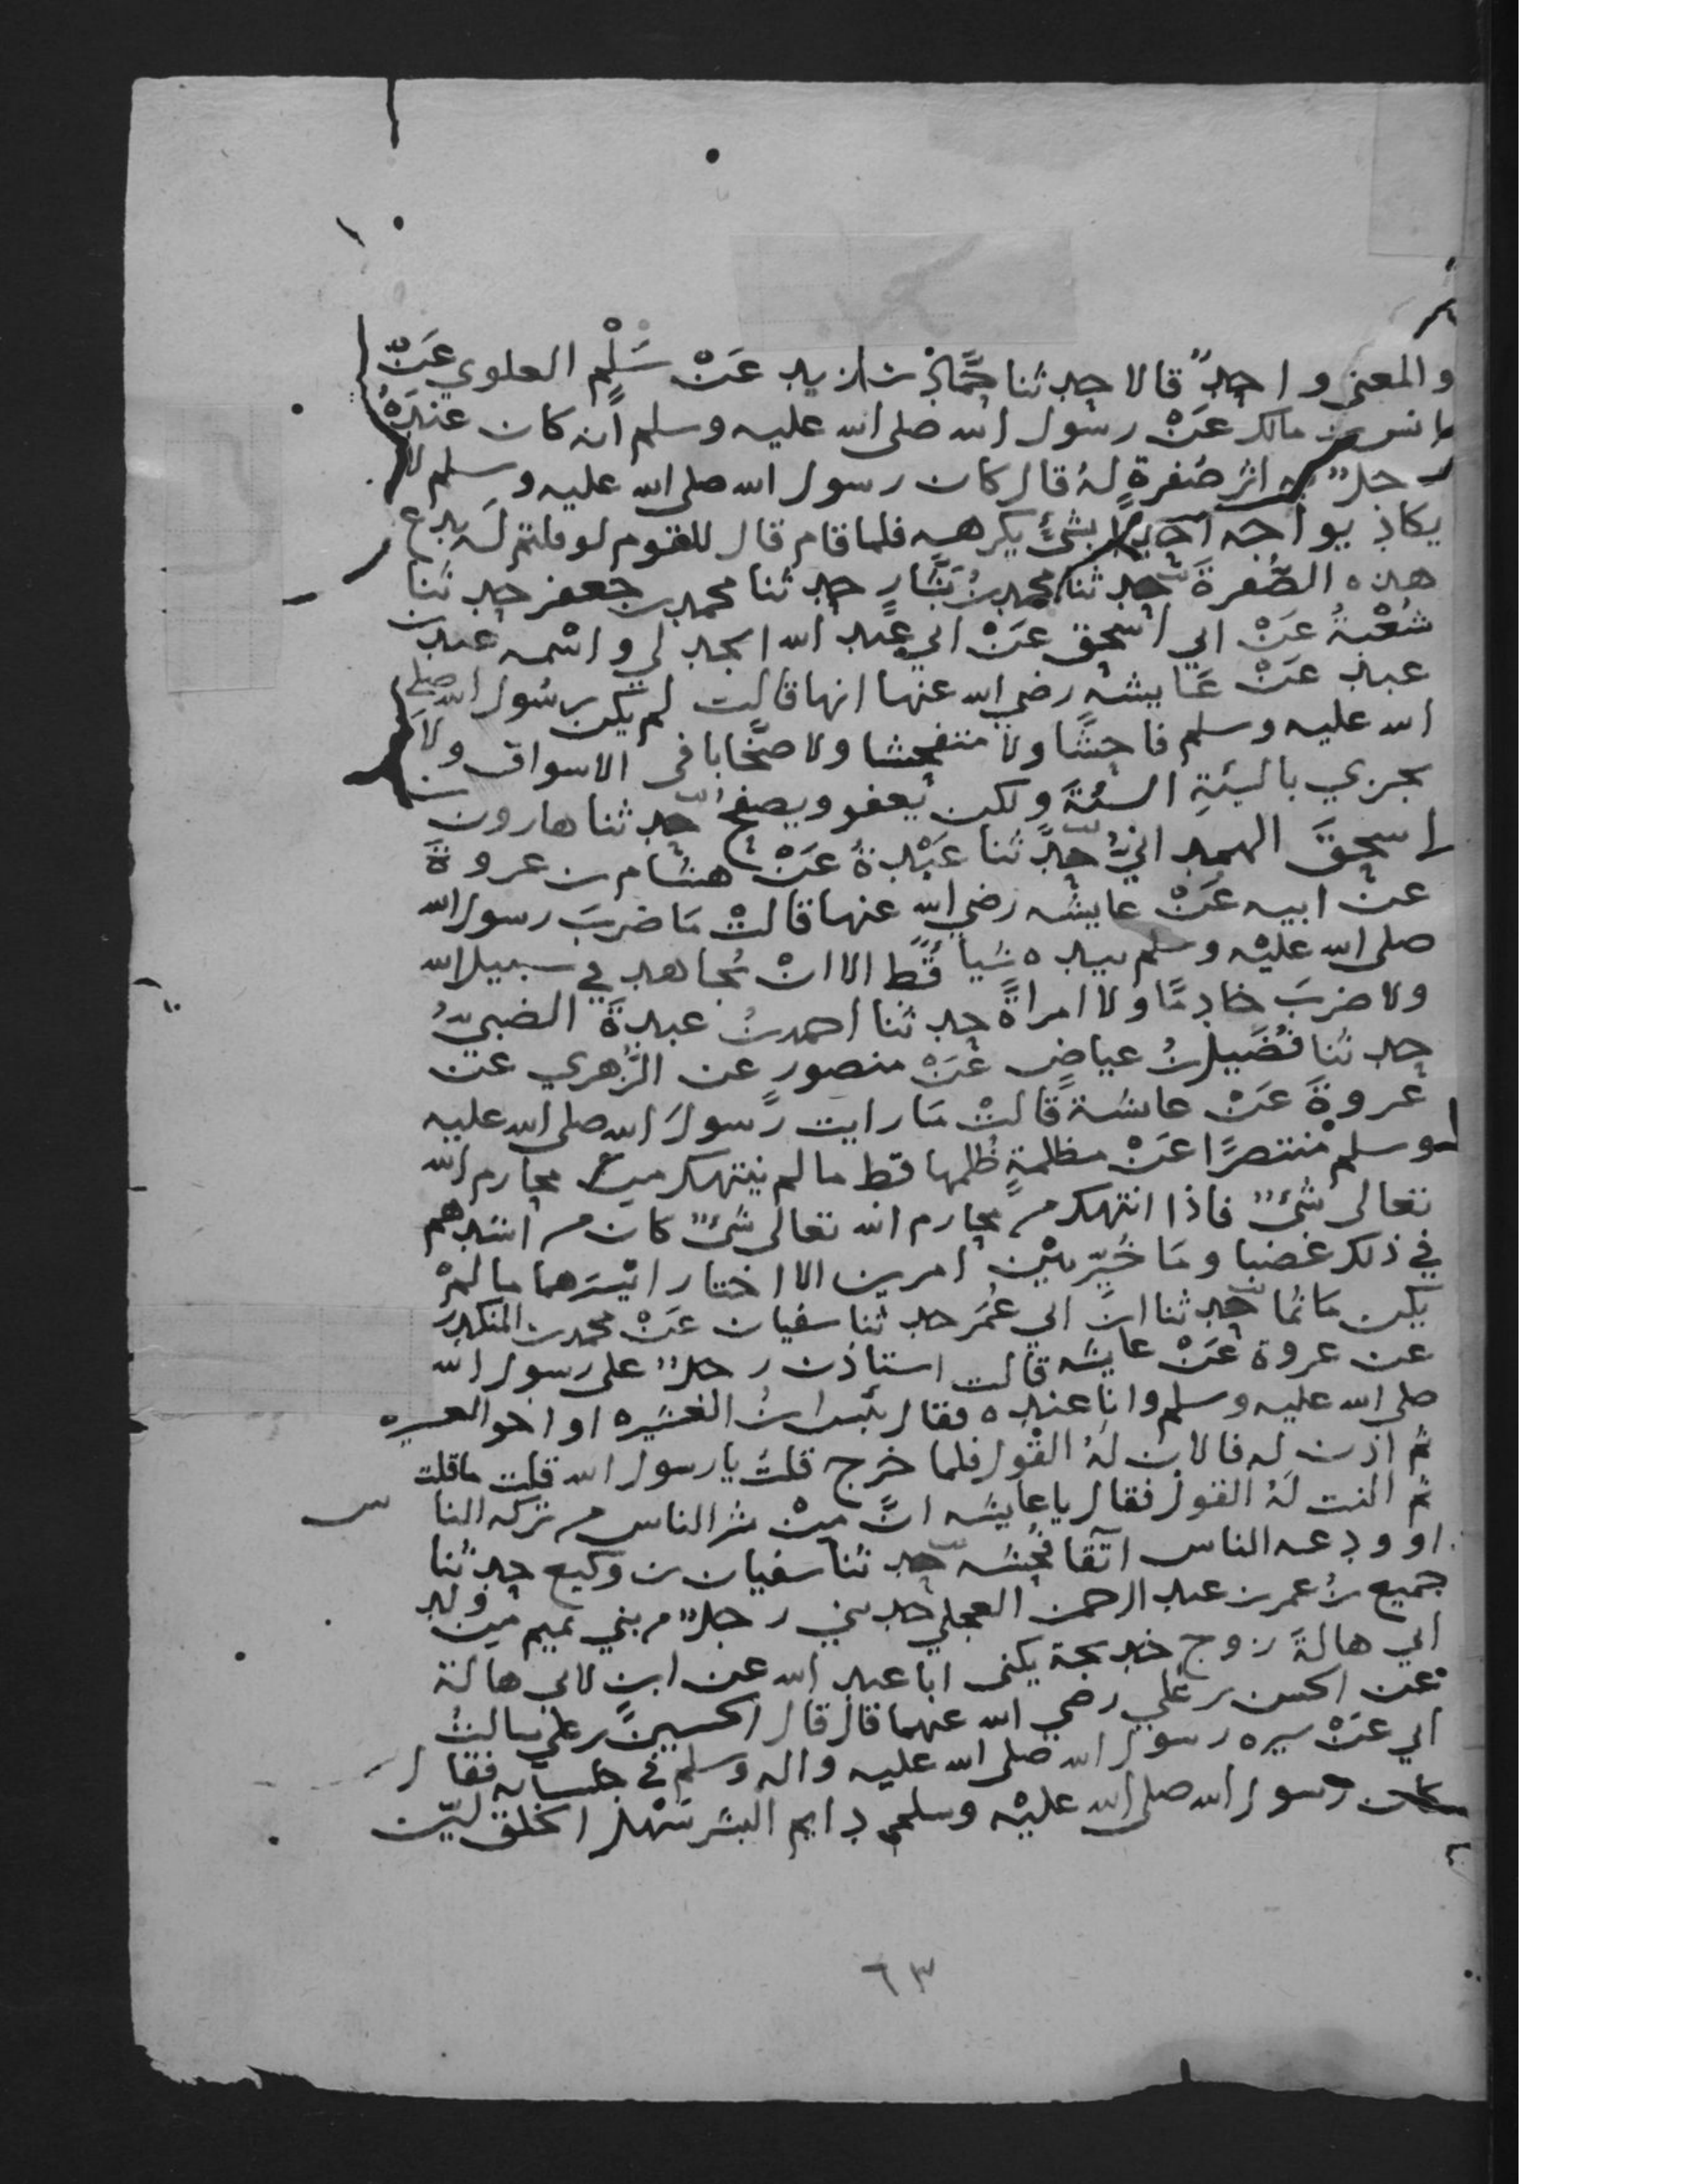 والمعنى واحدٌ قالا حدثنا حمّاد بن زيد عَنْ سَلْمٍ العلوي عَنْ
انس بن مالك عَنْ رسول الله صلى الله عليه وسلم أنه كان عندَهُ
رجلٌ به اثر صُفرةٍ لهُ قال كان رسول الله صلى الله عليه وسلم لا
يكاد يواجه احدًا بشئٍ يكرهه فلما قام قال للقوم لو قلتم لَه يدع
هذه الصُّفرةَ حدثنا محمد بنُ بَشَّارٍ حدثنا محمد بن جعفر حدثنا
شُعْبةُ عَنْ ابي اسحق عَنْ ابي عبد الله الجدلي واسْمه عبد بن
عبد عَنْ عَايشه رضي الله عنها انها قالت لم يكن رسُول الله صلى
الله عليه وسلم فاحِشًا ولا متفحشا ولا صخّابا في الاسواق ولا
يجزي بالسَّيئةِ السيئةَ ولكن يَعفو ويصفحُ حدثنا هارون بن
اسحقَ الهمدانيُّ حدَّثنا عَبْدةُ عَنْ هشام بن عروةَ
عَنْ ابيه عَنْ عايشه رضي الله عنها قالتْ مَا ضربَ رسول الله
صلى الله عليْه وسلم بيده شيأ قُطّ الا انْ يُجاهد في سبيل الله
ولا ضربَ خادِمًا ولا امراةً حدثنا احمد بنُ عبدةَ الضبيُّ
حدثنا فُضَيل بنُ عياضٍ عَنْ منصورٍ عن الزُّهري عن
عروةَ عَنْ عائشة قالتْ مَا رايت رسولَ الله صلى الله عليه
وسلم منتصرًا عَنْ مظلمةٍ ظُلمها قط ما لم ينتهك من محارم الله
تعالى شئٌ فاذا انتهك من محارم الله تعالى شئٌ كان من اشدهم
في ذلك غضبا ومَا خُيّر بيْن امرين الا اختار ايْسَرهما ما لمْ
يكن مَاثما حدثنا ابنُ ابي عُمَر حدثنا سفيان عَنْ محمد بن المنكدر
عن عروة عَنْ عايشه قالت استاذن رجلٌ على رسول الله
صلى الله عليه وسلم وانا عنده فقال بئس ابنُ العشيره او اخو العسيره
ثم اذن له فالان لهُ القْول فلما خرج قلتُ يا رسول الله قلت ما قلت
ثم النت لهُ القول فقال يا عايشه انَّ مِنْ شر الناس من تركه النا س
او ودعه الناس اتّقا فُحشه حدثنا سفيان بن وكيع حدثنا
جميع بنُ عمر بن عبد الرحمن العجلي حدثني رجلٌ من بني تميم مِن ولد
ابي هالةَ زوج خديجة يكنى ابا عبد الله عن ابن لابي هالة
عن الحسن بن علي رضي الله عنهما قال قال الحسين بن علي سالتُ
ابي عَنْ سيره رسول الله صلى الله عليه واله وسلم في جلسائه فقال
كان رسول الله صلى الله عليْه وسلم دايم البشر سَهْل الخلق ليّن
٦٣